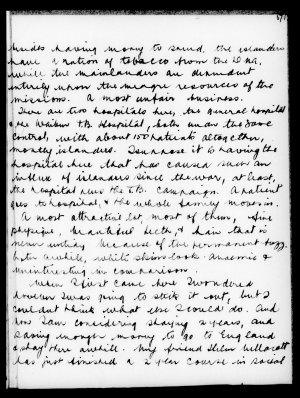 besides having money to spend, the islanders
have a ration of tobacco from the D.N.A.
while the mainlanders are dependent
entirely upon the meagre resources of the
missions. A most unfair business.
There are two hospitals here, the general hospital
& the Waiben T.B. Hospital, both under the same
control, with about 150 patients altogether,
mostly islanders. I suppose it is having the
hospital here that has caused such an
influx of islanders since the war, at least,
the hospital plus the T.B. campaign. A patient
goes to hospital, & the whole family moves in.
A most attractive lot, most of them, fine
physique, beautiful teeth, & hair that is
never untidy because of the permanent fuzz.
After awhile, white skins look anaemic &
uninteresting in comparison.
When I first came here I wondered
however I was going to stick it out, but I
couldn't think what else I could do. And
now I am considering staying 2 years, and
saving enough money to go to England
& stay there awhile. My friend
has just finished a 2 year course in social